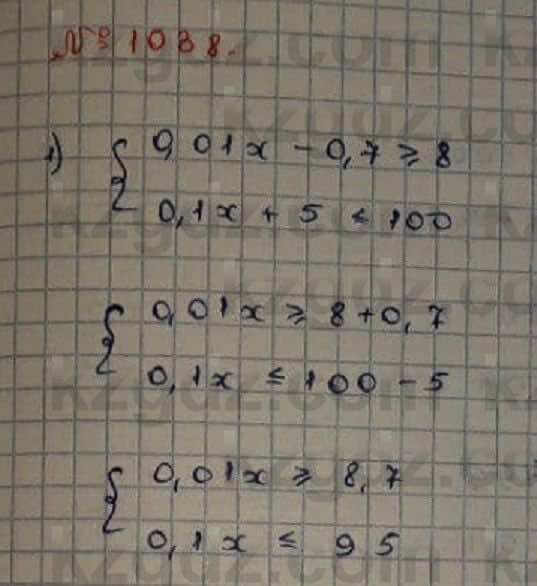 № 1038.
1) { 0,01x - 0,7 ≥ 8
0,1x + 5 ≤ 100
{ 0,01x ≥ 8 + 0,7
0,1x ≤ 100 - 5
{ 0,01x ≥ 8,7
0,1x ≤ 95